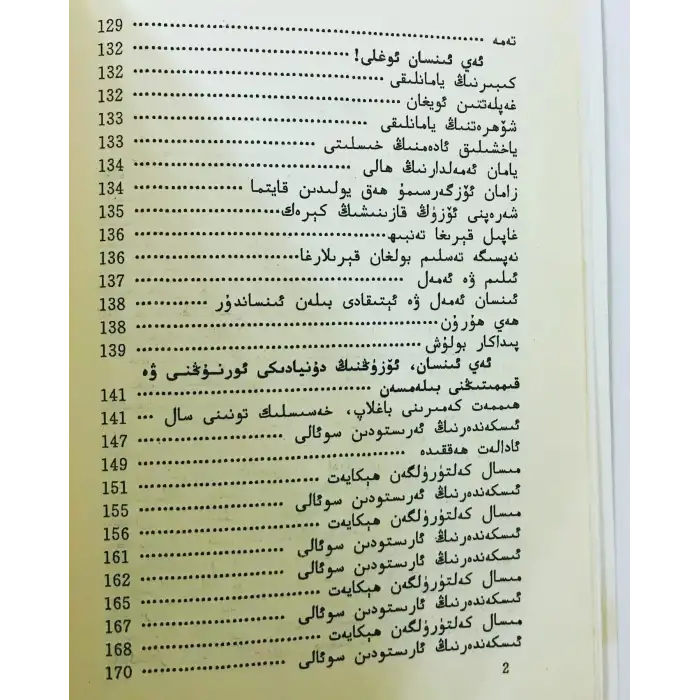 تەمە ........................ 129
ئەي ئىنسان ئوغلى! ........................ 132
كىبىرنىڭ يامانلىقى ........................ 132
غەپلەتتىن ئويغان ........................ 132
شۆھرەتنىڭ يامانلىقى ........................ 133
ياخشىلىق ئادەمنىڭ خىسلىتى ........................ 133
يامان ئەمەلدارنىڭ ھالى ........................ 134
زامان ئۆزگەرسىمۇ ھەق يولىدىن قايتما ........................ 134
شەرەپنى ئۆزۈڭ قازىنىشىڭ كېرەك ........................ 135
غاپىل قېرىغا تەنبىھ ........................ 136
نەپسىگە تەسلىم بولغان قېرىلارغا ........................ 136
ئىلىم ۋە ئەمەل ........................ 137
ئىنسان ئەمەل ۋە ئېتىقادى بىلەن ئىنساندۇر ........................ 138
ھەي ھۇرۇن ........................ 138
پىداكار بولۇش ........................ 139
ئەي ئىنسان، ئۆزۈڭنىڭ دۇنيادىكى ئورنۇڭنى ۋە
قىممىتىڭنى بىلەمسەن ........................ 141
ھىممەت كەمىرىنى باغلاپ، خەسىسلىك تونىنى سال ... 141
ئىسكەندەرنىڭ ئەرىستودىن سوئالى ........................ 147
ئادالەت ھەققىدە ........................ 149
مىسال كەلتۈرۈلگەن ھېكايەت ........................ 151
ئىسكەندەرنىڭ ئەرىستودىن سوئالى ........................ 155
مىسال كەلتۈرۈلگەن ھېكايەت ........................ 156
ئىسكەندەرنىڭ ئارىستودىن سوئالى ........................ 161
مىسال كەلتۈرۈلگەن ھېكايەت ........................ 162
ئىسكەندەرنىڭ ئارىستودىن سوئالى ........................ 165
مىسال كەلتۈرۈلگەن ھېكايەت ........................ 167
ئىسكەندەرنىڭ ئارىستودىن سوئالى ........................ 168
مىسال كەلتۈرۈلگەن ھېكايەت ........................ 170
ئىسكەندەرنىڭ ئارىستودىن سوئالى ........................
2